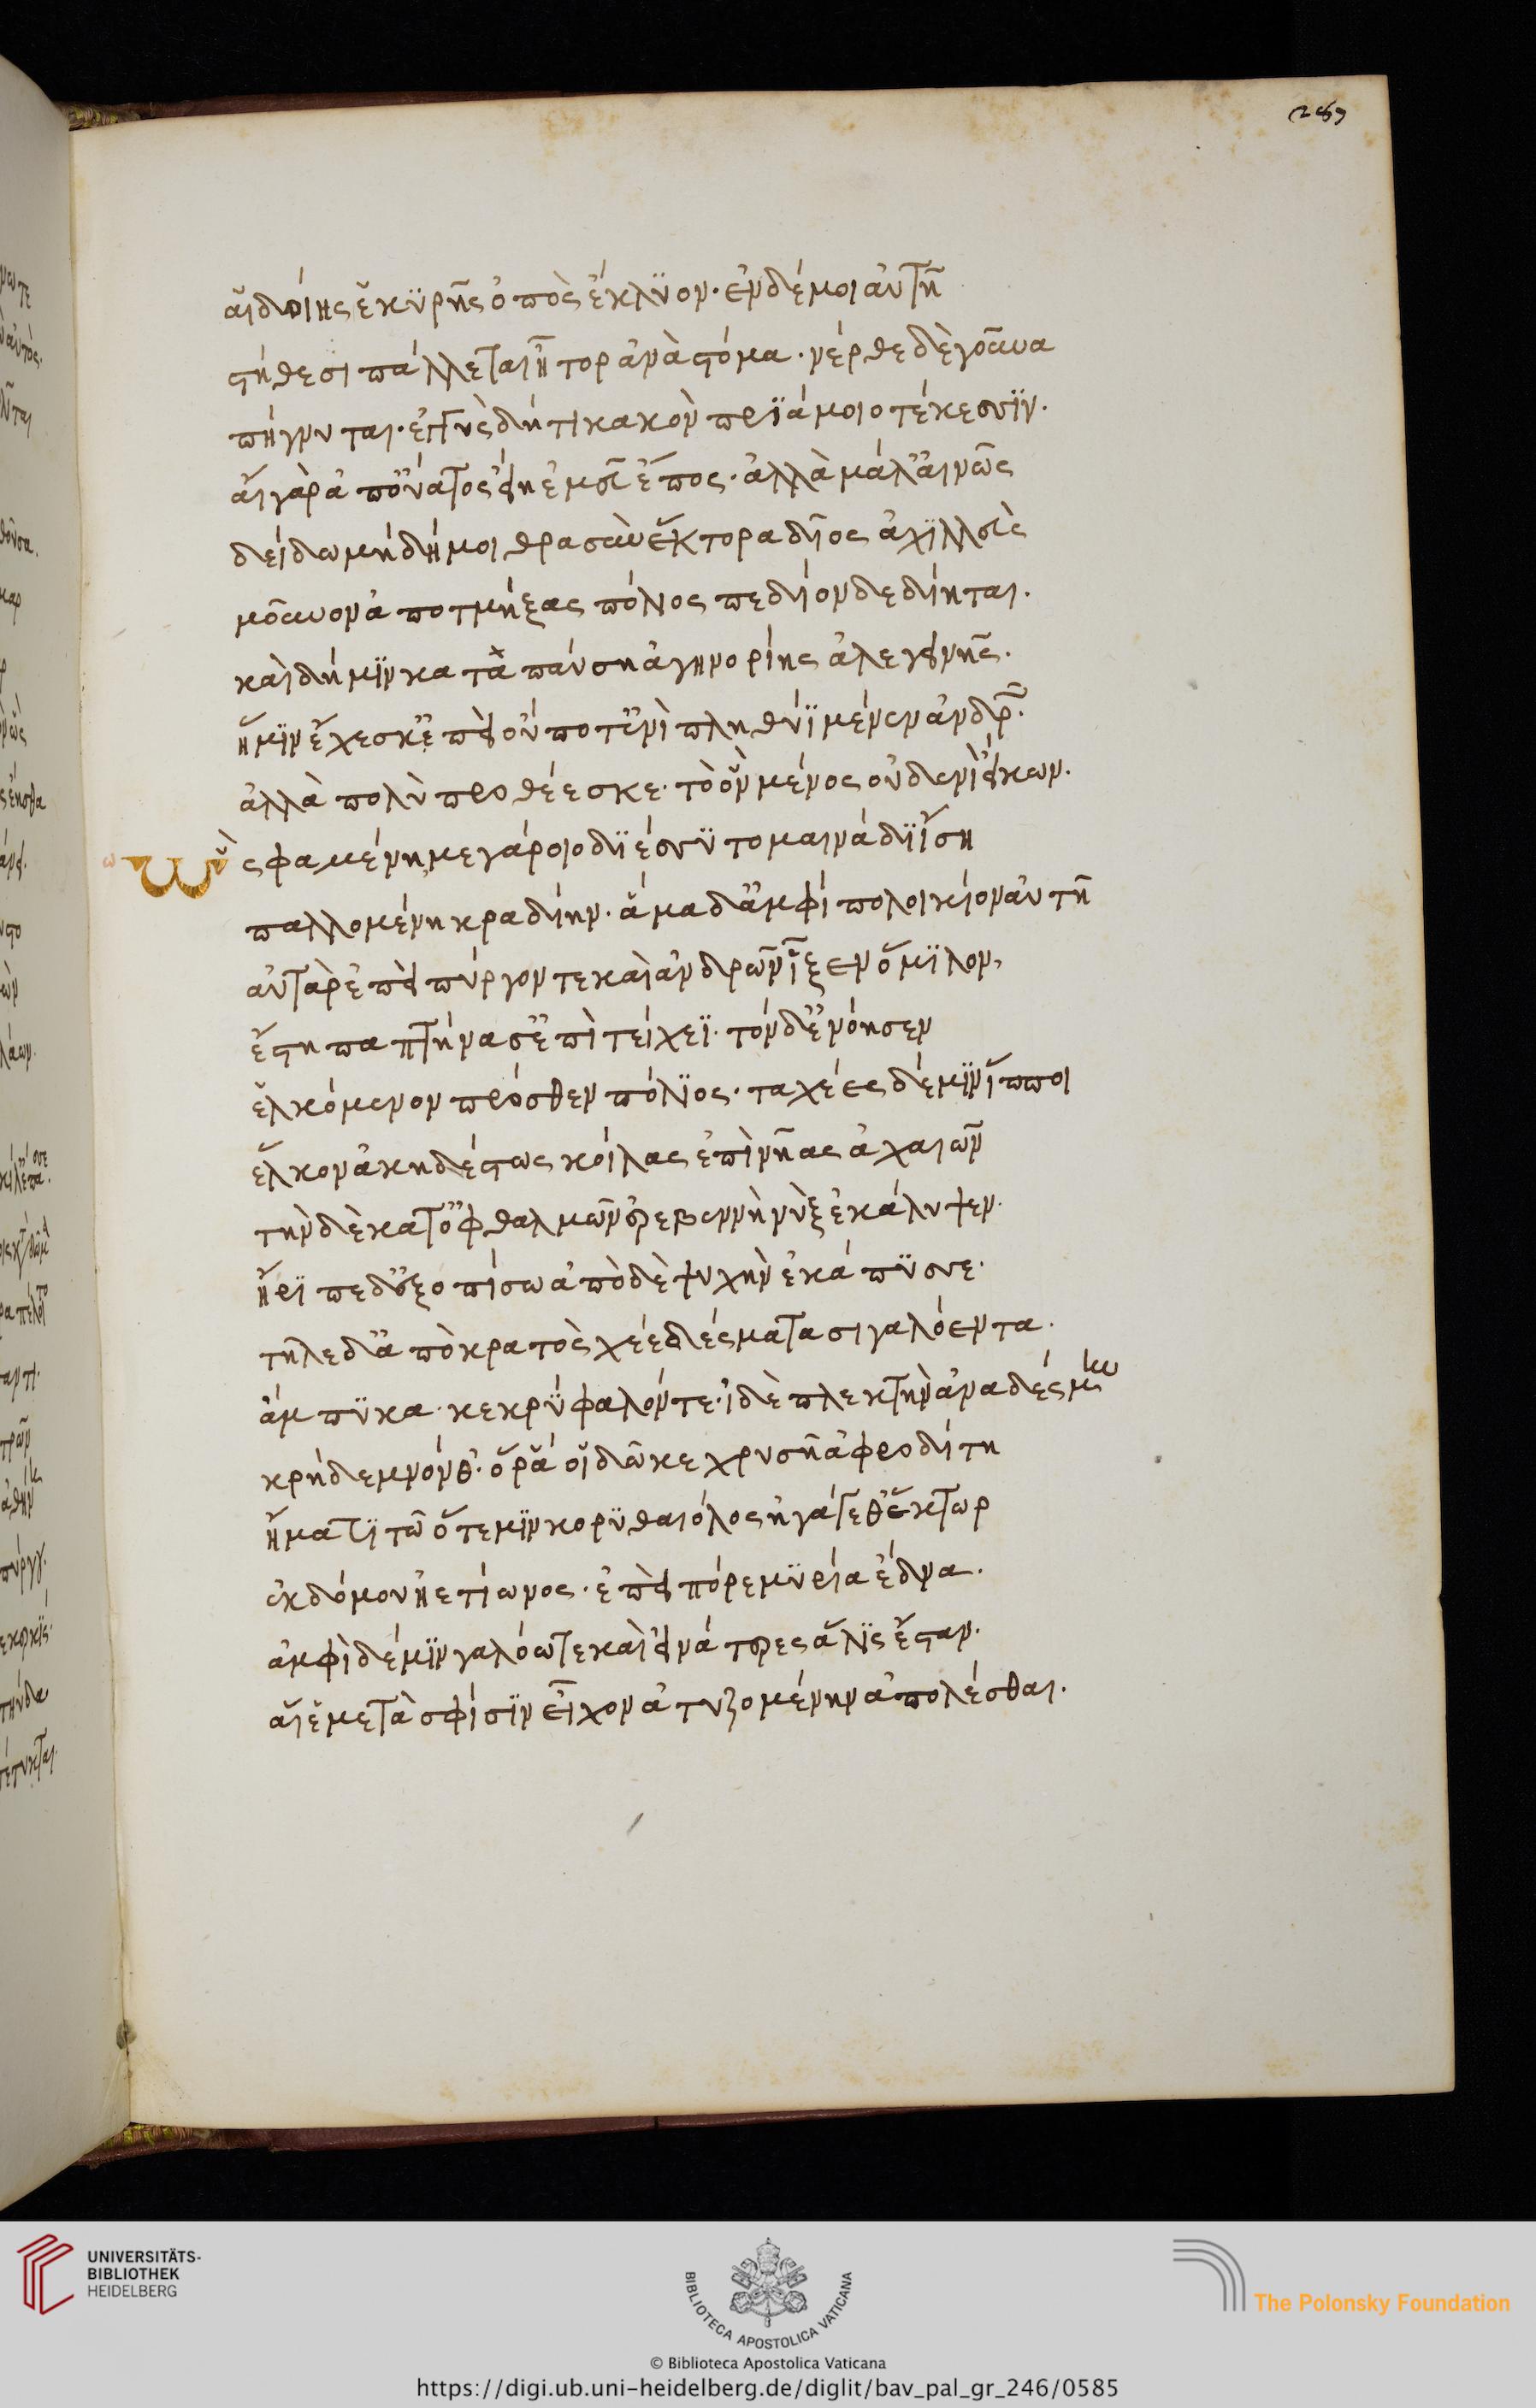 289
αἰδοίης ἑκϋρῆς ὀπὸς ἔκλϋον· ἐν δέ μοι αὐτῆ
στήθεσι πάλλεται ἦτορ ἀνὰ στόμα· νέρθε δὲ γοῦνα
πήγνυται· ἐγγὺς δή τι κακὸν πρϊάμοιο τέκεσσϊν·
αἲ γὰρ ἀπ' οὔατος εἴη ἐμεῦ ἔπος· ἀλλὰ μάλ' αἰνῶς
δείδω μὴ δή μοι θρασὺν ἕκτορα δῖος ἀχϊλλεὺς
μοῦνον ἀποτμήξας πόλιος πεδίον δε δίηται·
καὶ δή μϊν καταπαύση ἀγηνορίης ἀλεγεινῆς·
ἥ μϊν ἔχεσκ' ἐπεὶ οὔποτ' ἐνὶ πληθύϊ μένεν ἀνδρῶν·
ἀλλὰ πολὺ προθέεσκε· τὸ ὃν μένος οὐδενὶ εἴκων·
ὣς φαμένη μεγάροιο δϊέσσϋτο μαινάδϊ ἴση
παλλομένη κραδίην· ἅμα δ' ἀμφίπολοι κίον αὐτῆ
αὐτὰρ ἐπεὶ πύργον τε καὶ ἀνδρῶν ἷξεν ὅμϊλον,
ἔστη παπτήνασ' ἐπὶ τείχεϊ· τὸν δ' ἐνόησεν
ἑλκόμενον πρόσθεν πόλϊος· ταχέες δέ μϊν ἵπποι
ἕλκον ἀκηδέστως κοίλας ἐπὶ νῆας ἀχαιῶν
τὴν δὲ κατ' ὀφθαλμῶν ἐρεβεννὴ νὺξ ἐκάλυψεν·
ἤρϊπε δ' ἐξοπίσω ἀπὸ δὲ ψυχὴν ἐκάπϋσσε·
τῆλε δ' ἀπὸ κρατὸς χέε δέσματα σιγαλόεντα·
ἄμπϋκα· κεκρϋφαλόν τε· ἰδὲ πλεκτὴν ἀναδέσμην
κρήδεμνόν θ'· ὅ ῥά οἱ δῶκε χρυσῆ ἀφροδίτη
ἤματϊ τῶ ὅτε μϊν κορϋθαιόλος ἠγάγεθ' ἕκτωρ
ἐκ δόμου ἠετίωνος· ἐπεὶ πόρε μϋρία ἕδνα·
ἀμφὶ δέ μϊν γαλόω τε καὶ εἰνάτερες ἅλϊς ἔσταν·
αἵ ἑ μετὰ σφίσϊν εἶχον ἀτυζομένην ἀπολέσθαι·
UNIVERSITÄTS-
BIBLIOTHEK
HEIDELBERG
BIBLIOTECA APOSTOLICA VATICANA
The Polonsky Foundation
© Biblioteca Apostolica Vaticana
https://digi.ub.uni-heidelberg.de/diglit/bav_pal_gr_246/0585